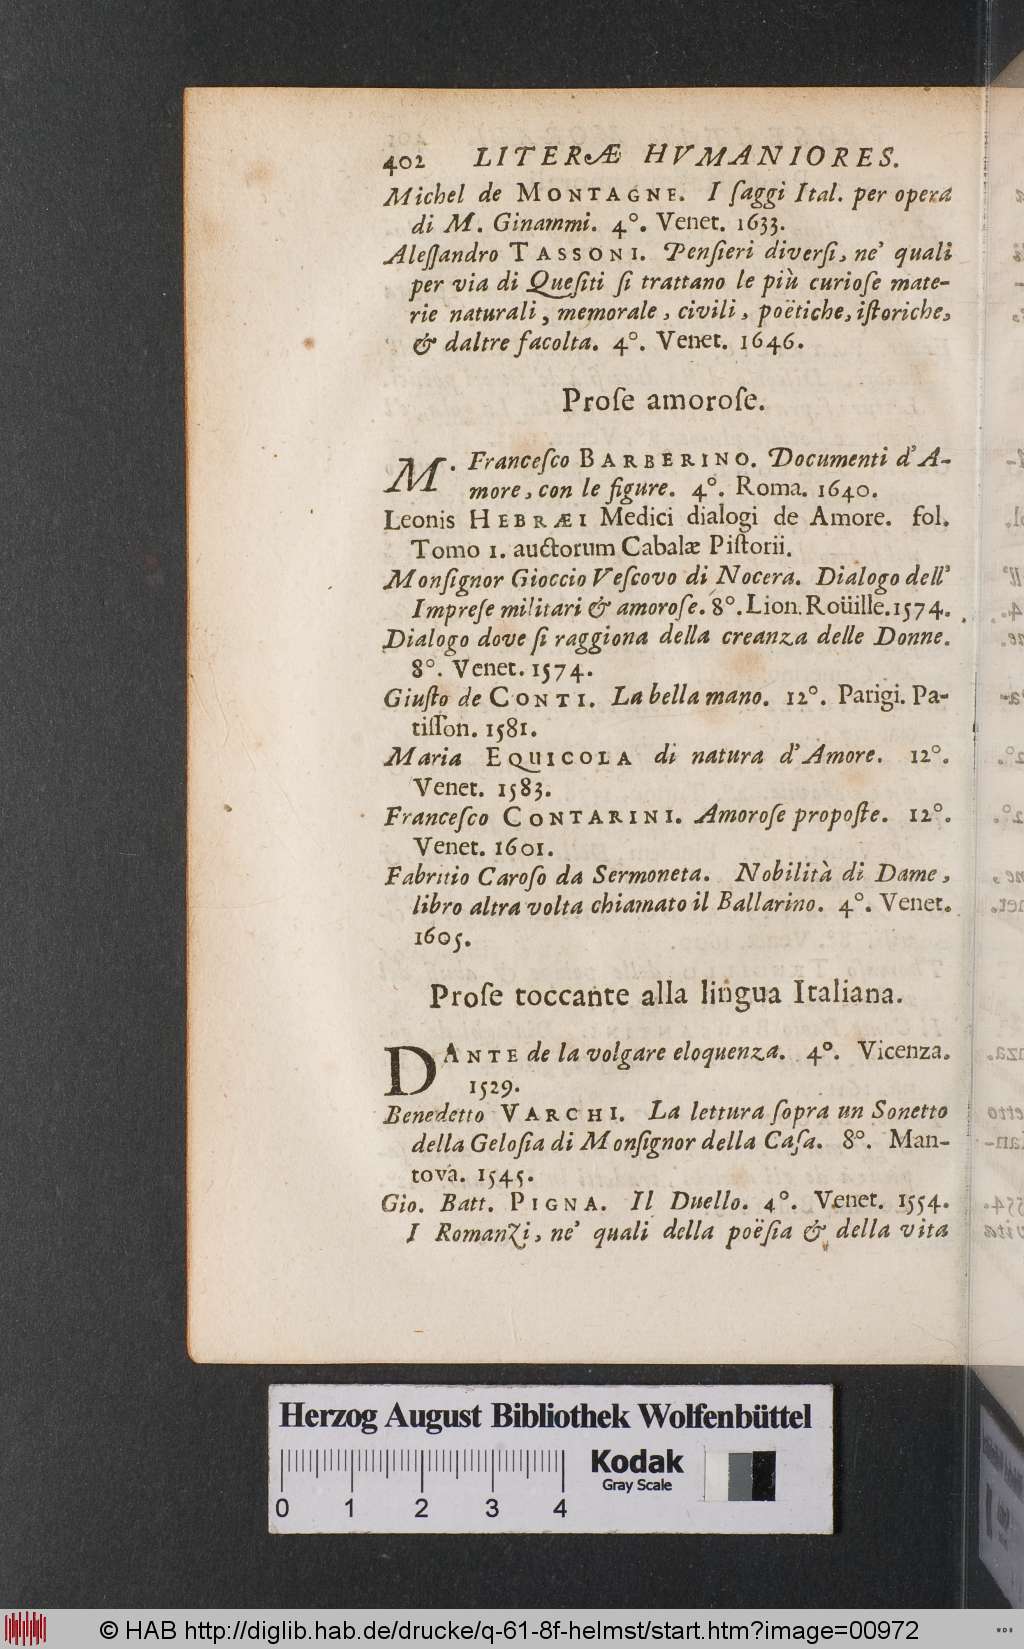 402 LITERÆ HVMANIORES.
Michel de MONTAGNE. I ſaggi Ital. per opera
di M. Ginammi. 4°. Venet. 1633.
Aleſſandro TASSONI. Penſieri diverſi, ne' quali
per via di Queſiti ſi trattano le più curioſe mate-
rie naturali, memorale, civili, poëtiche, iſtoriche,
& daltre facolta. 4°. Venet. 1646.
Proſe amoroſe.
M. Franceſco BARBERINO. Documenti d'A-
more, con le figure. 4°. Roma. 1640.
Leonis HEBRÆI Medici dialogi de Amore. fol.
Tomo 1. auctorum Cabalæ Piſtorii.
Monſignor Gioccio Veſcovo di Nocera. Dialogo dell'
Impreſe militari & amoroſe. 8°. Lion. Roüille. 1574.
Dialogo dove ſi raggiona della creanza delle Donne.
8°. Venet. 1574.
Giuſto de CONTI. La bella mano. 12°. Parigi. Pa-
tiſſon. 1581.
Maria EQUICOLA di natura d'Amore. 12°.
Venet. 1583.
Franceſco CONTARINI. Amoroſe propoſte. 12°.
Venet. 1601.
Fabritio Caroſo da Sermoneta. Nobilità di Dame,
libro altra volta chiamato il Ballarino. 4°. Venet.
1605.
Proſe toccante alla lingua Italiana.
DANTE de la volgare eloquenza. 4°. Vicenza.
1529.
Benedetto VARCHI. La lettura ſopra un Sonetto
della Geloſia di Monſignor della Caſa. 8°. Man-
tova. 1545.
Gio. Batt. PIGNA. Il Duello. 4°. Venet. 1554.
I Romanzi, ne' quali della poëſia & della vita
Herzog August Bibliothek Wolfenbüttel
Kodak
Gray Scale
0 1 2 3 4
© HAB http://diglib.hab.de/drucke/q-61-8f-helmst/start.htm?image=00972